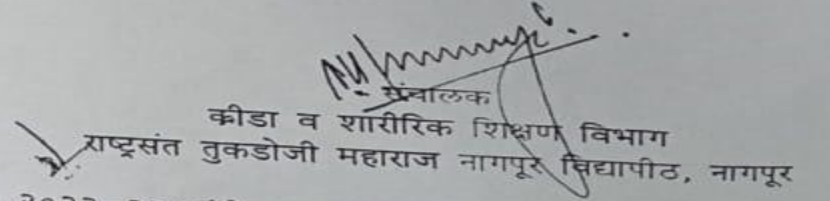 संचालक
क्रीडा व शारीरिक शिक्षण विभाग
राष्ट्रसंत तुकडोजी महाराज नागपूर विद्यापीठ, नागपूर